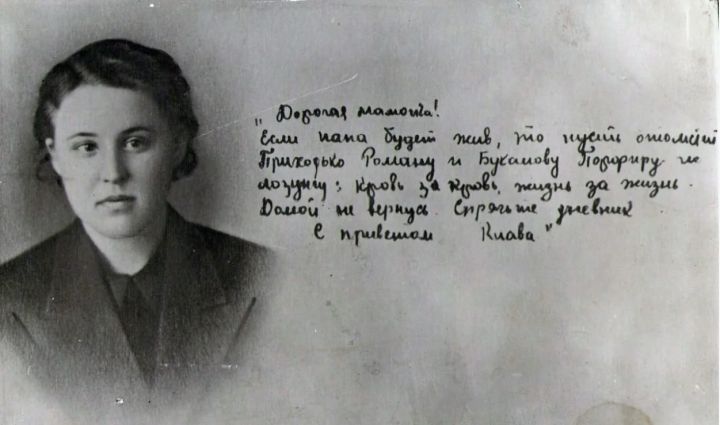 „Дорогая мамочка!
Если папа будет жив, то пусть отомстит
Приходько Роману и Буканову Порфиру по
лозунгу: кровь за кровь, жизнь за жизнь.
Домой не вернусь. Спрячьте дневник
С приветом Клава"